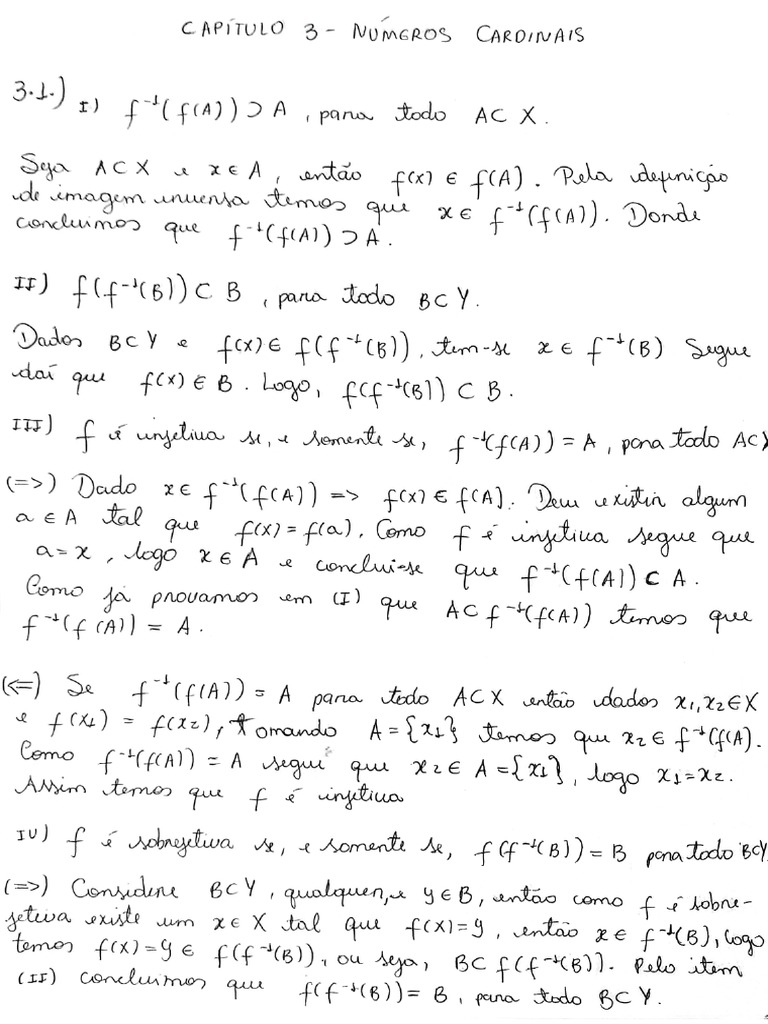 CAPÍTULO 3 - NÚMEROS CARDINAIS
3.1.) I) f⁻¹(f(A)) ⊃ A , para todo A ⊂ X.
Seja A ⊂ X e x ∈ A, então f(x) ∈ f(A). Pela definição
de imagem inversa temos que x ∈ f⁻¹(f(A)). Donde
concluimos que f⁻¹(f(A)) ⊃ A.
II) f(f⁻¹(B)) ⊂ B , para todo B ⊂ Y.
Dados B ⊂ Y e f(x) ∈ f(f⁻¹(B)), tem-se x ∈ f⁻¹(B) Segue
daí que f(x) ∈ B. Logo, f(f⁻¹(B)) ⊂ B.
III) f é injetiva se, e somente se, f⁻¹(f(A)) = A, para todo A ⊂ X
(=>) Dado x ∈ f⁻¹(f(A)) => f(x) ∈ f(A). Deve existir algum
a ∈ A tal que f(x) = f(a). Como f é injetiva segue que
a = x, logo x ∈ A e conclui-se que f⁻¹(f(A)) ⊂ A.
Como já provamos em (I) que A ⊂ f⁻¹(f(A)) temos que
f⁻¹(f(A)) = A.
(<=) Se f⁻¹(f(A)) = A para todo A ⊂ X então dados x₁, x₂ ∈ X
e f(x₁) = f(x₂), tomando A = {x₁} temos que x₂ ∈ f⁻¹(f(A).
Como f⁻¹(f(A)) = A segue que x₂ ∈ A = {x₁}, logo x₁ = x₂.
Assim temos que f é injetiva
IV) f é sobrejetiva se, e somente se, f(f⁻¹(B)) = B para todo B ⊂ Y
(=>) Considere B ⊂ Y, qualquer, e y ∈ B, então como f é sobre-
jetiva existe um x ∈ X tal que f(x) = y, então x ∈ f⁻¹(B), logo
temos f(x) = y ∈ f(f⁻¹(B)), ou seja, B ⊂ f(f⁻¹(B)). Pelo item
(II) concluimos que f(f⁻¹(B)) = B, para todo B ⊂ Y.